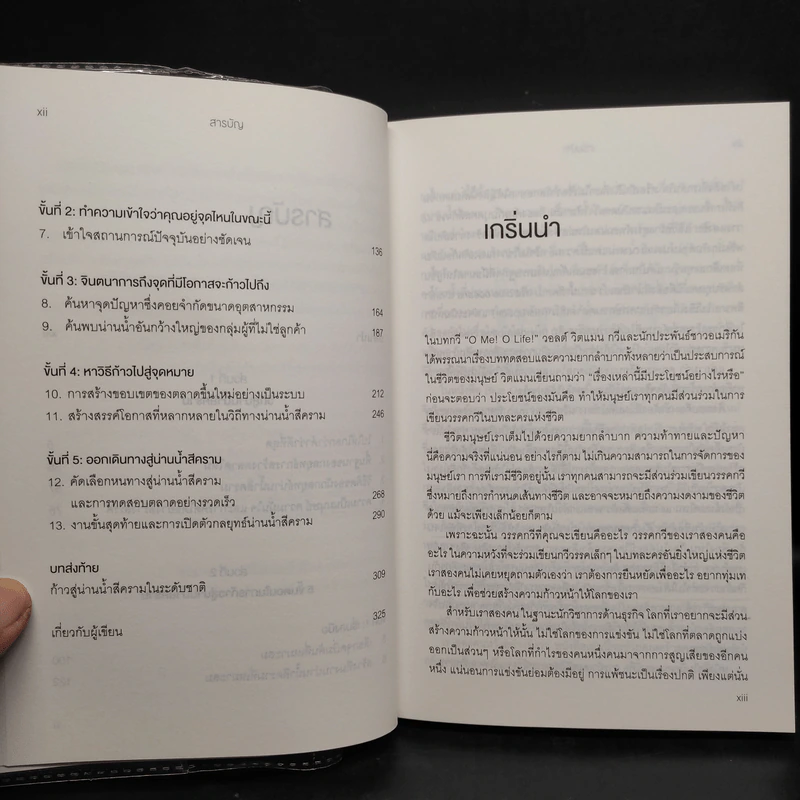 xii
สารบัญ
ขั้นที่ 2: ทำความเข้าใจว่าคุณอยู่จุดไหนในขณะนี้
7. เข้าใจสถานการณ์ปัจจุบันอย่างชัดเจน 136
ขั้นที่ 3: จินตนาการถึงจุดที่มีโอกาสจะก้าวไปถึง
8. ค้นหาจุดปัญหาซึ่งคอยจำกัดขนาดอุตสาหกรรม 164
9. ค้นพบน่านน้ำอันกว้างใหญ่ของกลุ่มผู้ที่ไม่ใช่ลูกค้า 187
ขั้นที่ 4: หาวิธีก้าวไปสู่จุดหมาย
10. การสร้างขอบเขตของตลาดขึ้นใหม่อย่างเป็นระบบ 212
11. สร้างสรรค์โอกาสที่หลากหลายในวิถีทางน่านน้ำสีคราม 246
ขั้นที่ 5: ออกเดินทางสู่น่านน้ำสีคราม
12. คัดเลือกหนทางสู่น่านน้ำสีคราม
และการทดสอบตลาดอย่างรวดเร็ว 268
13. งานขั้นสุดท้ายและการเปิดตัวกลยุทธ์น่านน้ำสีคราม 290
บทส่งท้าย
ก้าวสู่น่านน้ำสีครามในระดับชาติ 309
เกี่ยวกับผู้เขียน 325
เกริ่นนำ
ในบทกวี "O Me! O Life!" วอลต์ วิตแมน กวีและนักประพันธ์ชาวอเมริกัน
ได้พรรณนาเรื่องบททดสอบและความยากลำบากทั้งหลายว่าเป็นประสบการณ์
ในชีวิตของมนุษย์ วิตแมนเขียนถามว่า "เรื่องเหล่านี้มีประโยชน์อย่างไรหรือ"
ก่อนจะตอบว่า ประโยชน์ของมันคือ ทำให้มนุษย์เราทุกคนมีส่วนร่วมในการ
เขียนวรรคกวีในบทละครแห่งชีวิต
ชีวิตมนุษย์เราเต็มไปด้วยความยากลำบาก ความท้าทายและปัญหา
นี่คือความจริงที่แน่นอน อย่างไรก็ตาม ไม่เกินความสามารถในการจัดการของ
มนุษย์เรา การที่เรามีชีวิตอยู่นั้น เราทุกคนสามารถจะมีส่วนร่วมเขียนวรรคกวี
ซึ่งหมายถึงการกำหนดเส้นทางชีวิต และอาจจะหมายถึงความงดงามของชีวิต
ด้วย แม้จะเพียงเล็กน้อยก็ตาม
เพราะฉะนั้น วรรคกวีที่คุณจะเขียนคืออะไร วรรคกวีของเราสองคนคือ
อะไร ในความหวังที่จะร่วมเขียนกวีวรรคเล็กๆ ในบทละครอันยิ่งใหญ่แห่งชีวิต
เราสองคนไม่เคยหยุดถามตัวเองว่า เราต้องการยืนหยัดเพื่ออะไร อยากทุ่มเท
กับอะไร เพื่อช่วยสร้างความก้าวหน้าให้โลกของเรา
สำหรับเราสองคน ในฐานะนักวิชาการด้านธุรกิจ โลกที่เราอยากจะมีส่วน
สร้างความก้าวหน้าให้นั้น ไม่ใช่โลกของการแข่งขัน ไม่ใช่โลกที่ตลาดถูกแบ่ง
ออกเป็นส่วนๆ หรือโลกที่กำไรของคนหนึ่งคนมาจากการสูญเสียของอีกคน
หนึ่ง แน่นอนการแข่งขันย่อมต้องมีอยู่ การแพ้ชนะเป็นเรื่องปกติ เพียงแต่นั่น
xiii